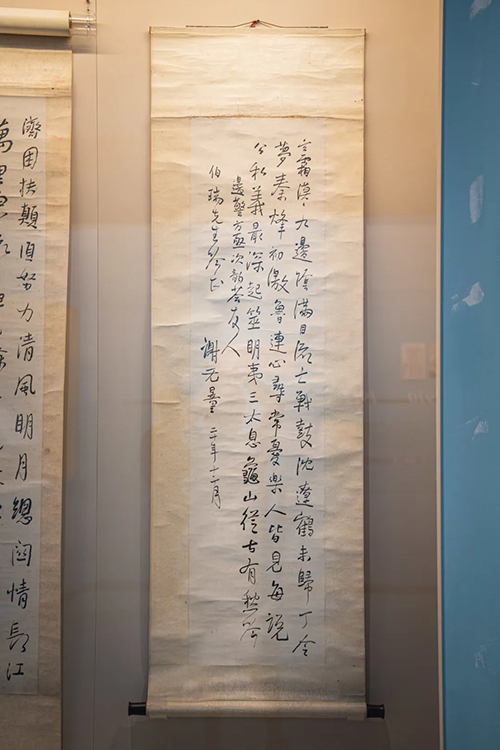 霜漠漠九邊陰滿目流亡戰鼓沈遼鶴未歸丁令
夢秦烽初激魯連心尋常憂樂人皆見每說
公私義最深起筮明夷第三太息龜山從古有愁吟
邊警方亟次韵答友人
伯瑞先生吟正 謝无量 二十年十二月
濟困扶顛須努力清風明月總關情長江
萬里